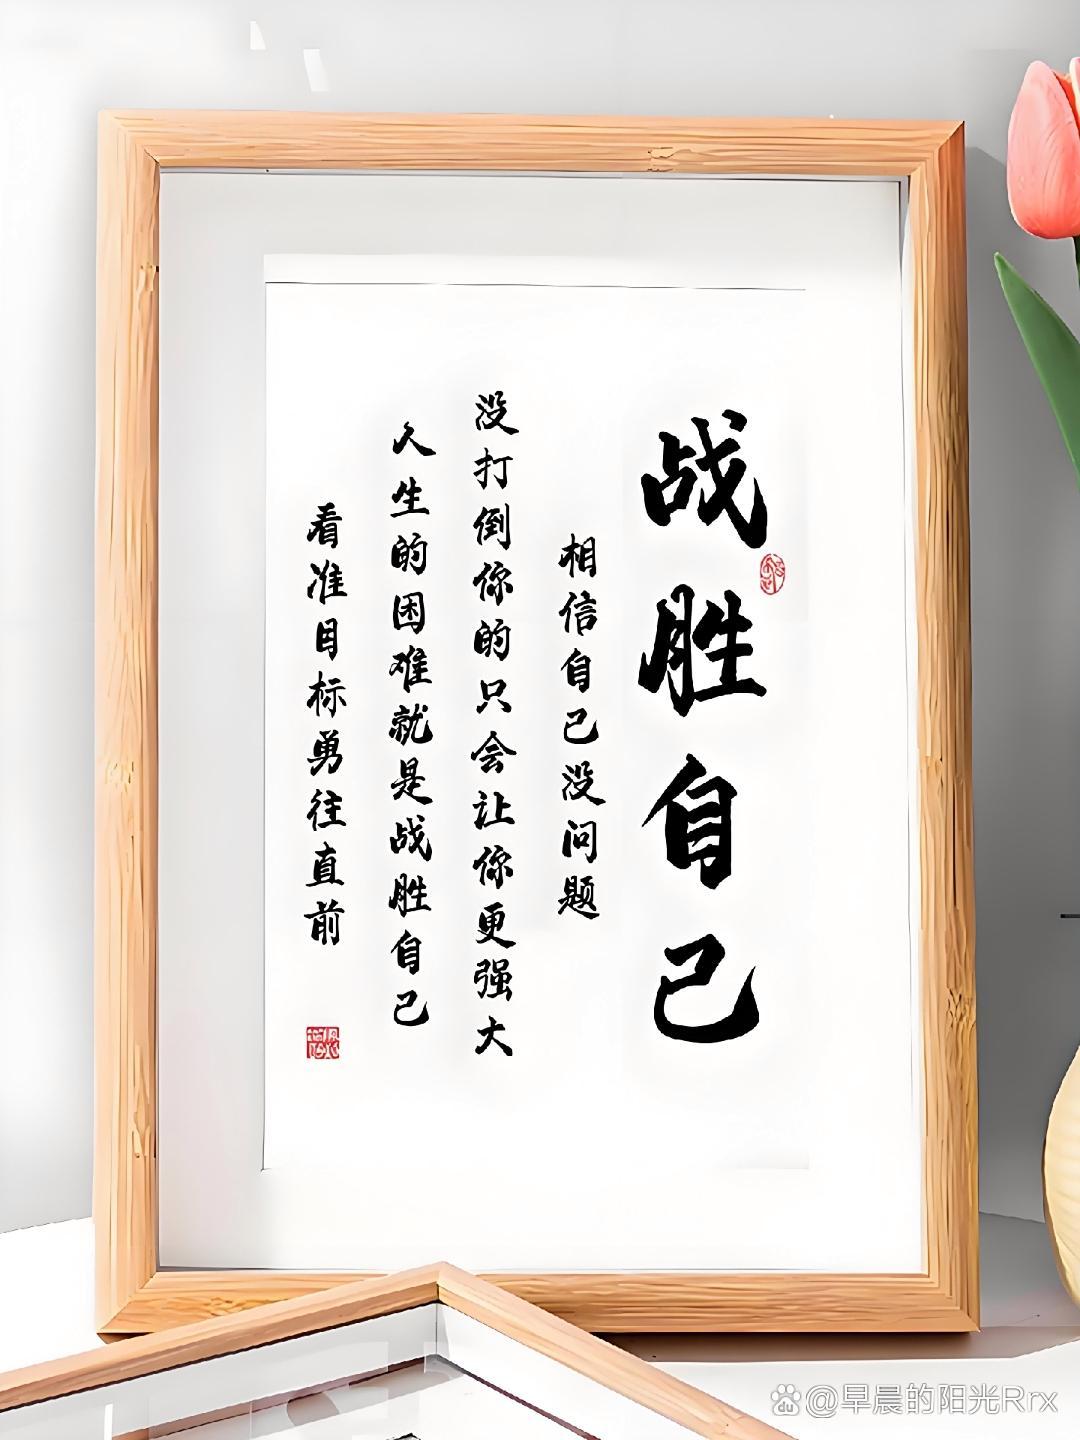 战胜自己
相信自己没问题
没打倒你的只会让你更强大
人生的困难就是战胜自己
看准目标勇往直前
@早晨的阳光Rrx